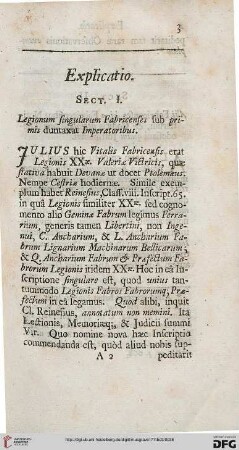 3
Explicatio.
SECT. I.
Legionum singularum Fabricenses sub pri-
mis duntaxat Imperatoribus.
JULIUS hic Vitalis Fabricensis erat
Legionis XXæ. Valeriæ Victricis, quæ
stativa habuit Devanæ ut docet Ptolemæus.
Nempe Cestriæ hodiernæ. Simile exem-
plum habet Reinesius, Class. viii. Inscript. 65.
in quâ Legionis similiter XXæ. sed cogno-
mento alio Geminæ Fabrum legimus Ferra-
rium, generis tamen Libertini, non Inge-
nui, C. Ancharium, & L. Ancharium Fa-
brum Lignarium Machinarum Bellicarum,
& Q. Ancharium Fabrum & Præfectum Fa-
brorum Legionis itidem XXæ. Hoc in eâ In-
scriptione singulare est, quod unius tan-
tummodo Legionis Fabros Fabrorumq; Præ-
fectum in eâ legamus. Quod alibi, inquit
Cl. Reinesius, annotatum non memini. Ita
Lectionis, Memoriæq; & Judicii summi
Vir. Quo nomine nova hæc Inscriptio
commendanda est, quòd aliud nobis sup-
A 2 peditarit
DFG